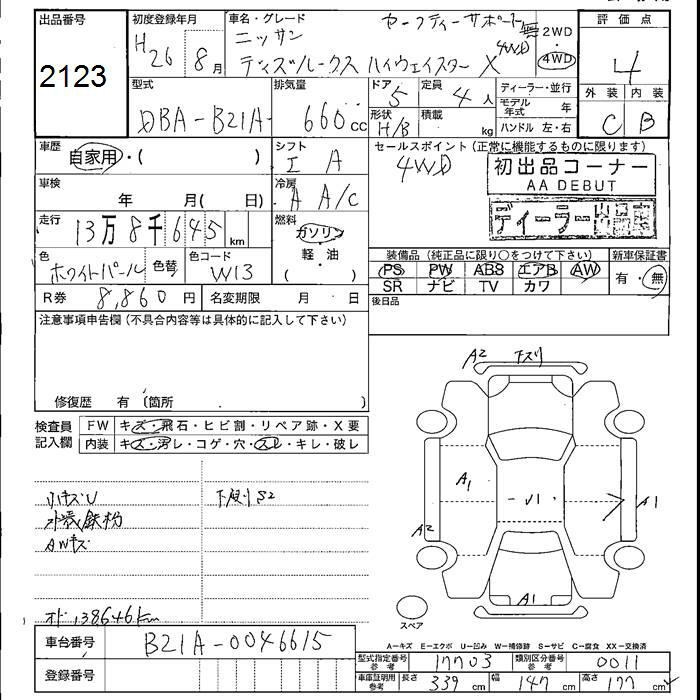 出品番号
2123
初度登録年月
H26 8月
車名・グレード
セーフティーサポート無
ニッサン
4WD
デイズルークス ハイウェイスター X
2WD
4WD
評価点
4
外装 内装
C B
型式
DBA-B21A
排気量
660cc
ドア 5
定員 4人
形状 H/B
積載 kg
ディーラー・並行
モデル年式 年
ハンドル 左・右
車歴
自家用・( )
シフト
I A
セールスポイント (正常に機能するものに限ります)
4WD
初出品コーナー
AA DEBUT
ディーラー出品店
車検
年 月( 日)
冷房
A A/C
走行
13万8千645km
燃料
ガソリン
軽・油
( )
色
ホワイトパール
色替
色コード
W13
装備品 (純正品に限り○をつけて下さい)
PS PW ABS エアB AW
SR ナビ TV カワ
新車保証書
有・無
R券 8,860円
名変期限 月 日
後日品
注意事項申告欄 (不具合内容等は具体的に記入して下さい)
修復歴 有 (箇所 )
検査員記入欄
FW キズ・飛石・ヒビ割・リペア跡・X要
内装 キズ・汚レ・コゲ・穴・スレ・キレ・破レ
小キズU
下廻りS2
外装鉄粉
AWキズ
オド138646km
A2 下スリ
A1
A2
U1
A1
A1
スペア
A=キズ E=エクボ U=凹み W=補修跡 S=サビ C=腐食 XX=交換済
車台番号
B21A-0046615
登録番号
型式指定番号参考
17703
類別区分番号参考
0011
車庫証明用参考
長さ 339cm
幅 147cm
高さ 177cm